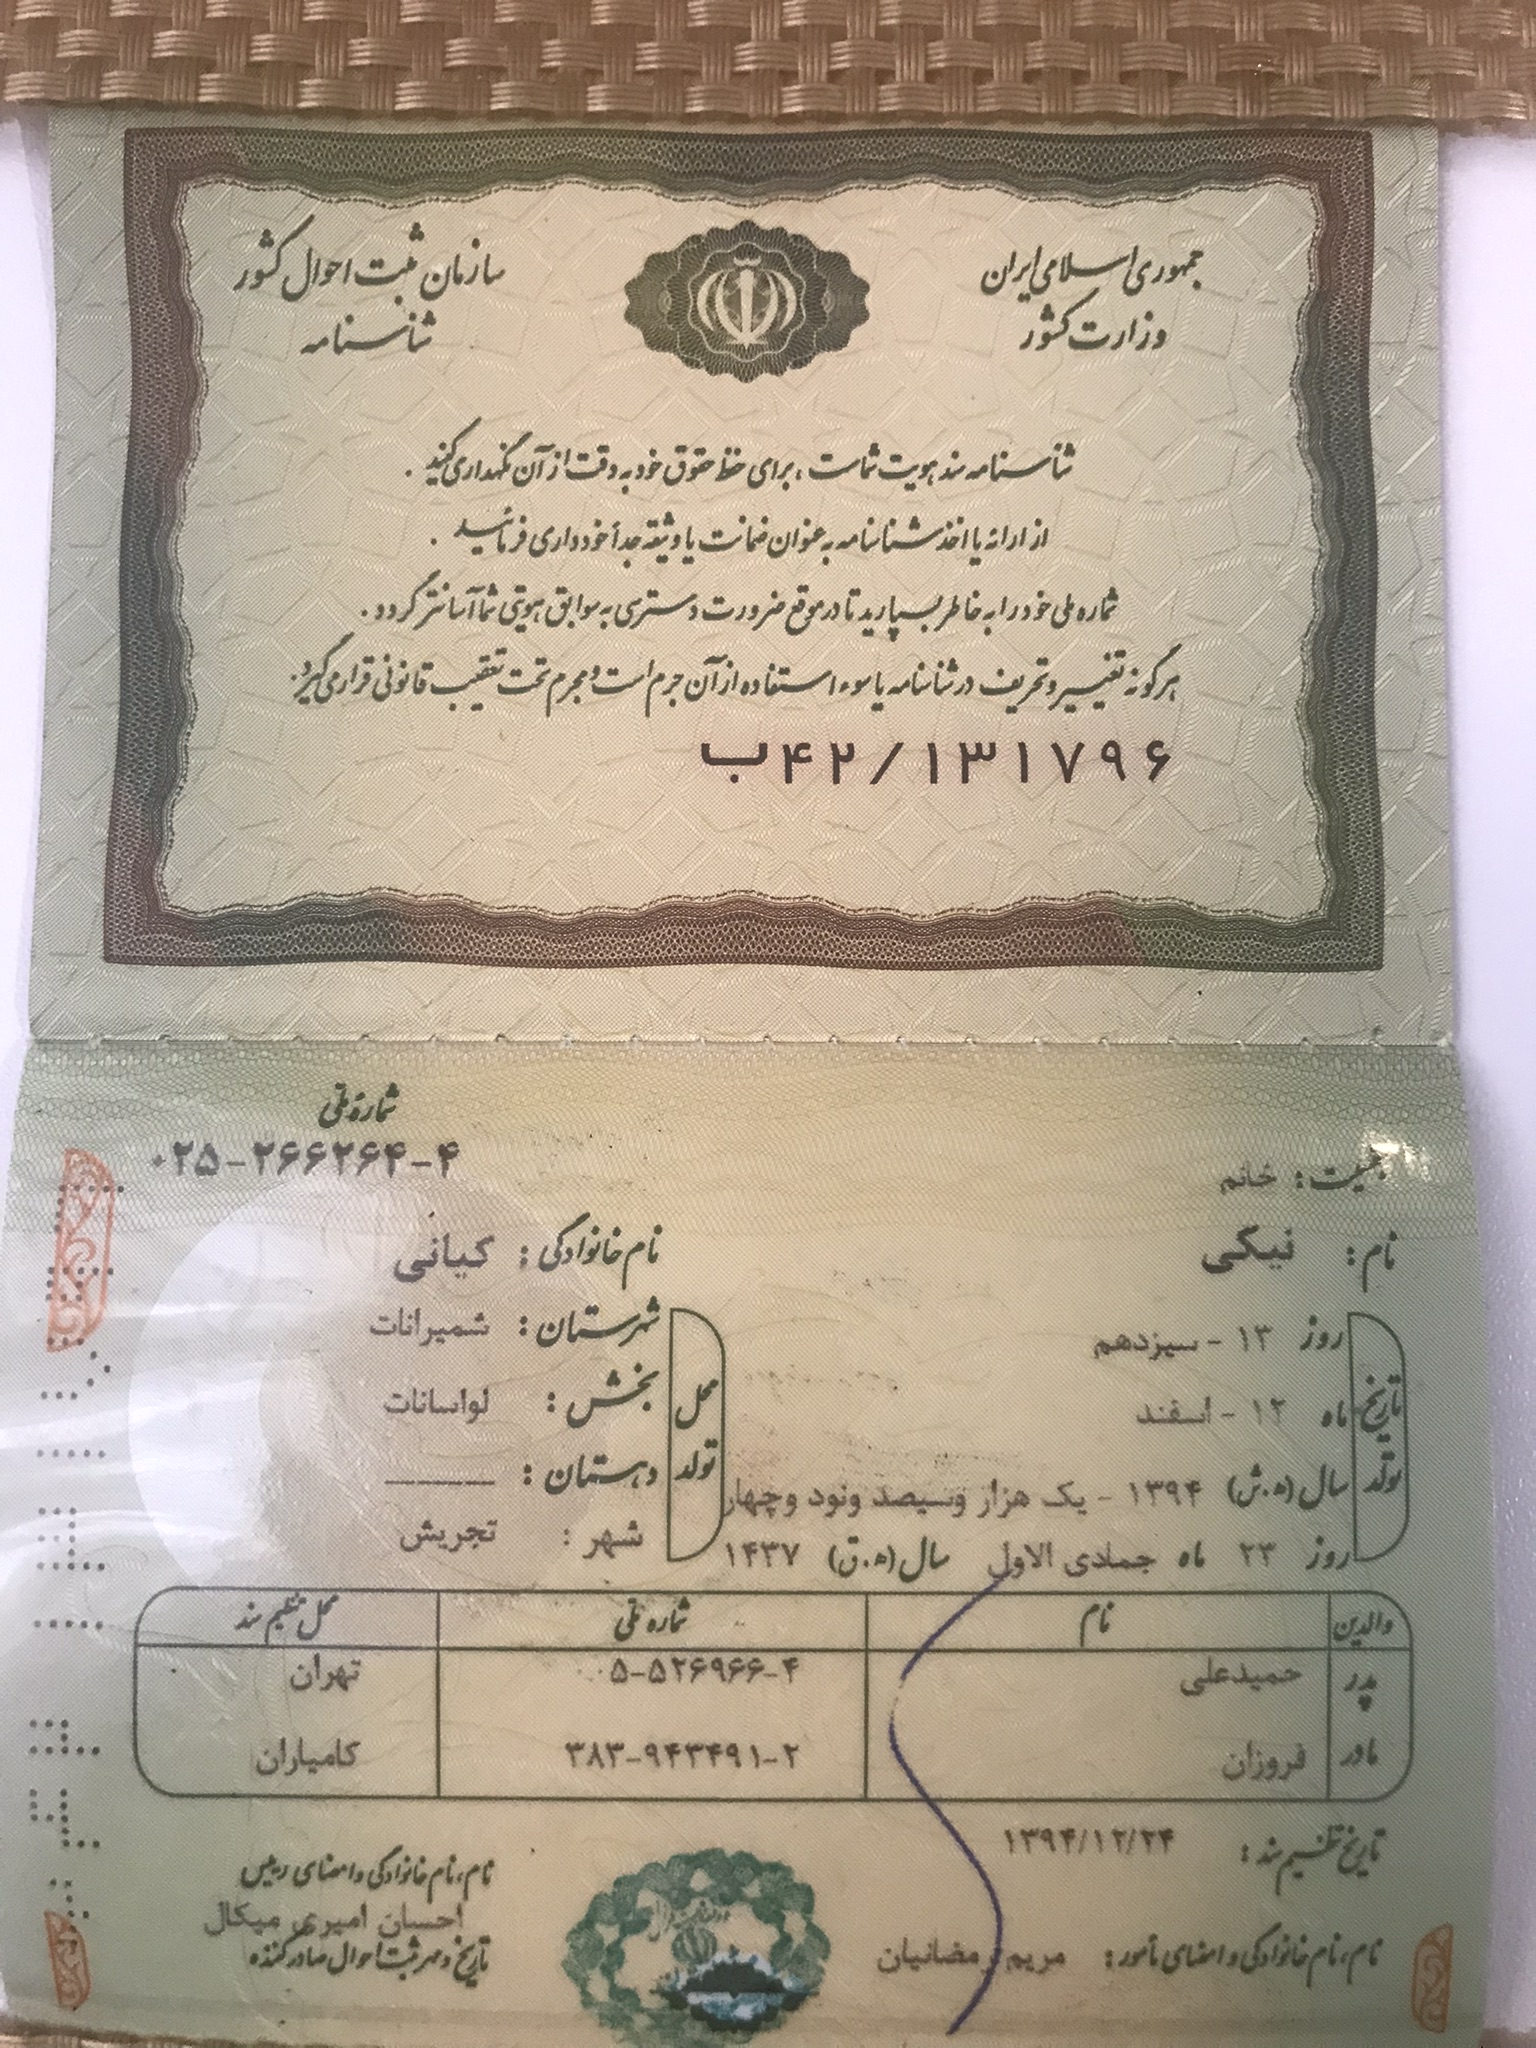 جمهوری اسلامی ایران
وزارت کشور
سازمان ثبت احوال کشور
شناسنامه
شناسنامه سند هویت شماست ، برای حفظ حقوق خود به دقت از آن نگهداری کنید .
از ارائه یا اخذ شناسنامه به عنوان ضمانت یا وثیقه جداً خودداری فرمائید .
شماره ملی خود را به خاطر بسپارید تا در موقع ضرورت دسترسی به سوابق هویتی شما آسانتر گردد .
هرگونه تغییر و تحریف در شناسنامه یا سوء استفاده از آن جرم است و مجرم تحت تعقیب قانونی قرار می گیرد .
ب۴۲/۱۳۱۷۹۶
شماره ملی
۰۲۵-۲۶۶۲۶۴-۴
جنسیت : خانم
نام : نیکی
نام خانوادگی : کیانی
تاریخ تولد
روز ۱۳ - سیزدهم
ماه ۱۲ - اسفند
سال (ه.ش) ۱۳۹۴ - یک هزار وسیصد ونود وچهار
روز ۲۳ ماه جمادی الاول سال (ه.ق) ۱۴۳۷
محل تولد
شهرستان : شمیرانات
بخش : لواسانات
دهستان : ـــــــــ
شهر : تجریش
والدین نام شماره ملی محل تنظیم سند
پدر حمیدعلی ۰۰۵-۵۲۶۹۶۶-۴ تهران
مادر فروزان ۳۸۳-۹۴۳۴۹۱-۲ کامیاران
تاریخ تنظیم سند : ۱۳۹۴/۱۲/۲۴
نام، نام خانوادگی و امضای مأمور : مریم رمضانیان
نام، نام خانوادگی و امضای رییس
احسان امیری میکال
تاریخ و مهر ثبت احوال صادر کننده